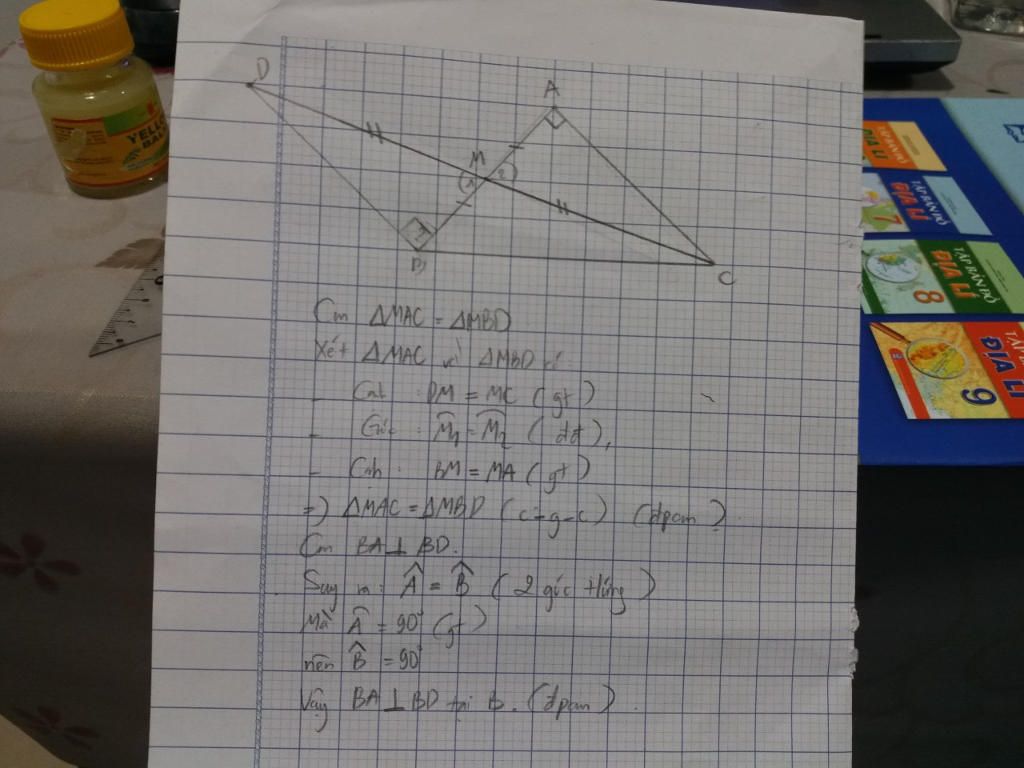 D
A
M
1
2
B
C
Cm ΔMAC = ΔMBD
Xét ΔMAC và ΔMBD có
- Cạnh : DM = MC (gt)
- Góc : M̂1 = M̂2 (đđ),
- Cạnh : BM = MA (gt)
=) ΔMAC = ΔMBD (c-g-c) (đpcm)
Cm BA ⊥ BD.
Suy ra: Â = B̂ (2 góc tứng)
Mà Â = 90° (gt)
nên B̂ = 90°
Vậy BA ⊥ BD tại B. (đpcm).
YELLO
BA
ĐỊA LÍ
TẬP BẢN ĐỒ
ĐỊA LÍ
7
TẬP BẢN ĐỒ
ĐỊA LÍ
8
TẬP
ĐỊA LÍ
9